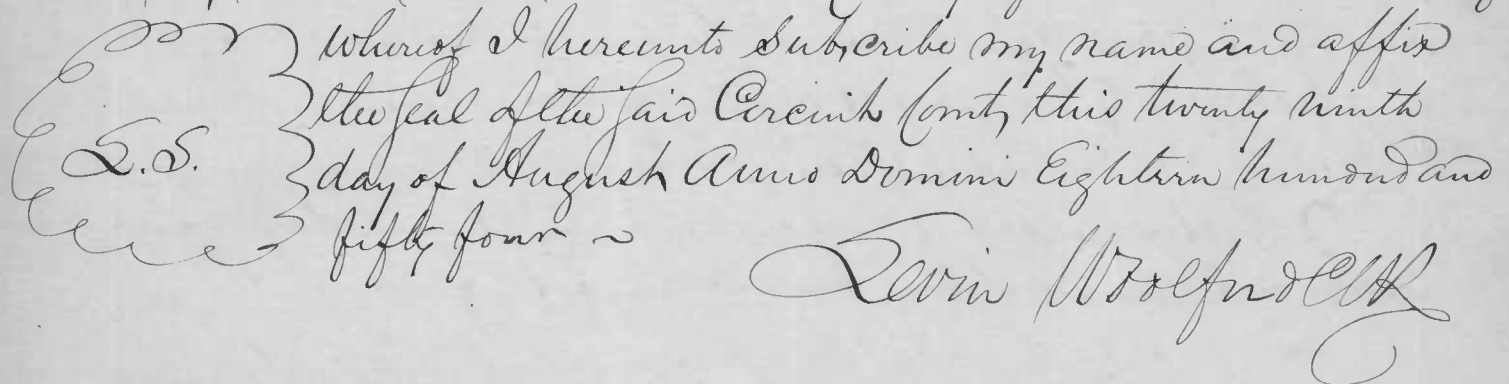 whereof I hereunto Subscribe my name and affix
the seal of the said Circuit Court, this twenty ninth
L.S.
day of August Anno Domini Eighteen hundred and
fifty four ~
Levin Woolford Clk